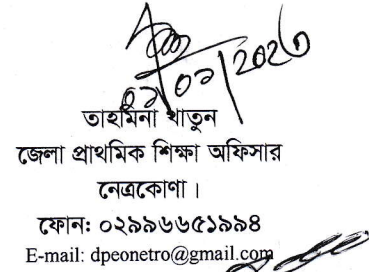 তাহমিনা খাতুন
জেলা প্রাথমিক শিক্ষা অফিসার
নেত্রকোণা।
ফোন: ০২৯৯৬৬৫১৯৯৪
E-mail: dpeonetro@gmail.com